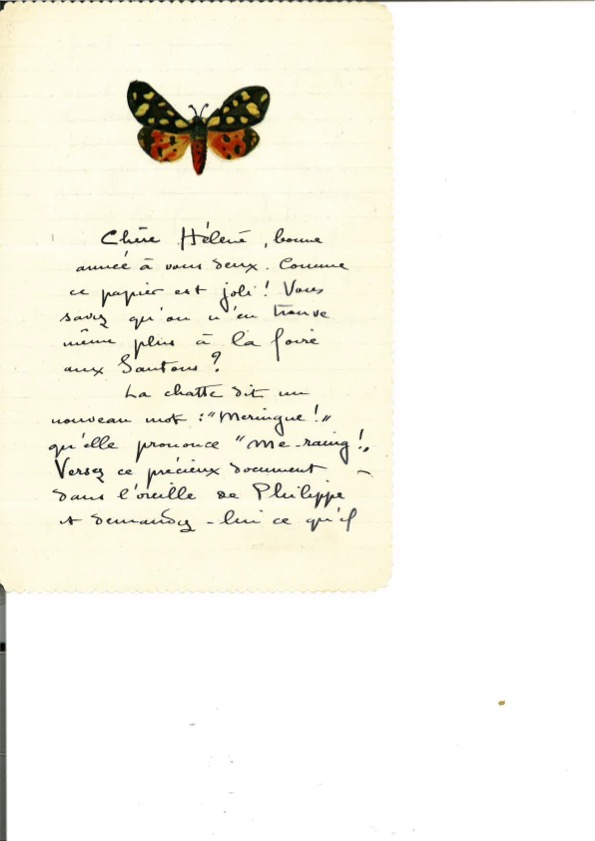 Chère Hélène, bonne
année à vous deux. Comme
ce papier est joli ! Vous
savez qu'on n'en trouve
même plus à la foire
aux Santons ?
La chatte dit un
nouveau mot : "Meringue !"
qu'elle prononce "Me-raing !"
Versez ce précieux document -
dans l'oreille de Philippe
et demandez-lui ce qu'il